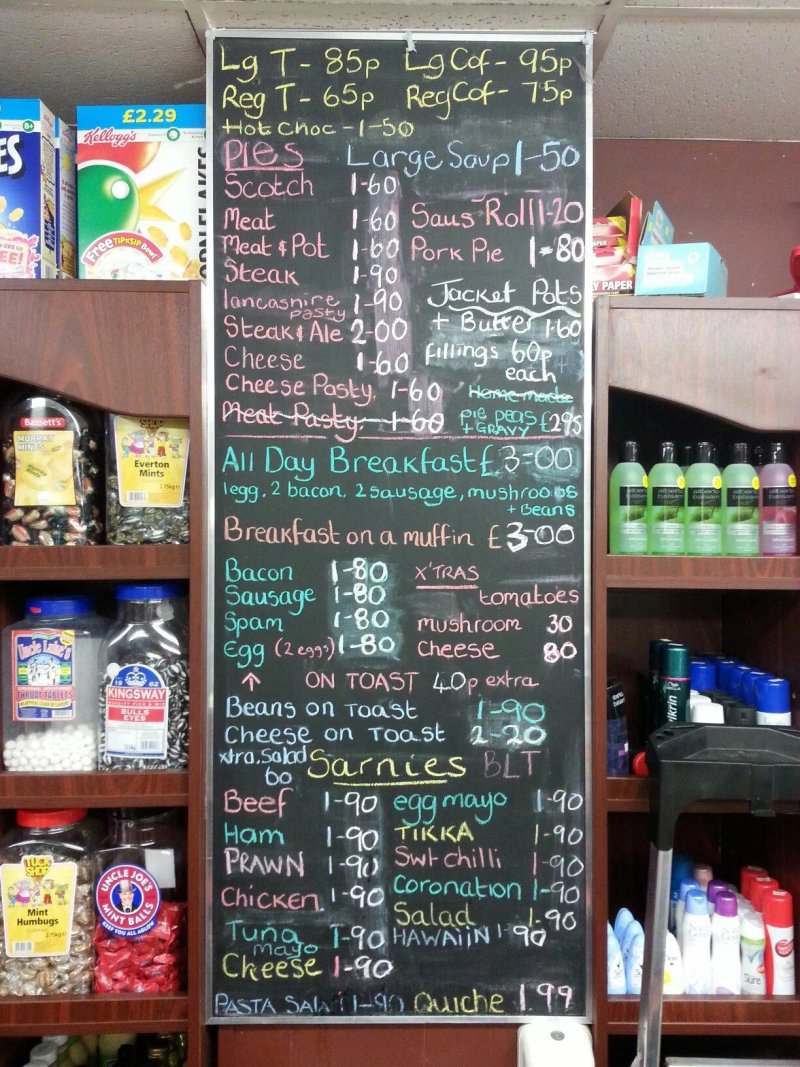 Lg T - 85p Lg Cof - 95p
Reg T - 65p Reg Cof - 75p
Hot Choc - 1-50
PIES Large Soup 1-50
Scotch 1-60
Meat 1-60 Saus Roll 1-20
Meat & Pot 1-60 Pork Pie 1-80
Steak 1-90
lancashire pasty 1-90 Jacket Pots
Steak & Ale 2-00 + Butter 1-60
Cheese 1-60 fillings 60p each
Cheese Pasty 1-60 Home made
Meat Pasty 1-60 pie peas + GRAVY £2.95
All Day Breakfast £3-00
1egg, 2 bacon, 2 sausage, mushroo s
+ Beans
Breakfast on a muffin £3-00
Bacon 1-80 X'TRAS
Sausage 1-80 tomatoes
Spam 1-80 mushroom 30
Egg (2 eggs) 1-80 cheese 80
↑ ON TOAST 40p extra
Beans on Toast 1-90
Cheese on Toast 2-20
xtra, Salad 60 Sarnies BLT
Beef 1-90 egg mayo 1-90
Ham 1-90 TIKKA 1-90
PRAWN 1-90 Swt chilli 1-90
Chicken 1-90 Coronation 1-90
Salad 1-90
Tuna mayo 1-90 HAWAIIN 1-90
Cheese 1-90
PASTA SALA 1-90 Quiche 1.99
£2.29
Kellogg's
ORN FLAKES
Free TIP'N'SIP Bowl
ES
EE!
PAPER
Y PAPER
Bassett's
MURRAY MINTS
SHOP
Everton Mints
2.75kg e
Uncle Luke's
THROAT TABLETS
19 62
KINGSWAY
BULLS EYES
TUCK SHOP
Mint Humbugs
2.75kg e
UNCLE JOE'S
MINT BALLS
KEEP YOU ALL AGLOW
alberto balsam
alberto balsam
alberto balsam
alberto balsam
alberto balsam
Sure